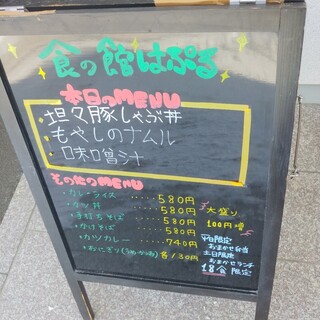 食の館はぷる
本日のMENU
坦々豚しゃぶ丼
もやしのナムル
味噌汁
その他のMENU
カレーライス ・・・・・580円
カツ丼 ・・・・・580円
手打ちそば ・・・・・580円
かけそば ・・・・・580円
カツカレー ・・・・・740円
おにぎり 各130円
大盛り
100円増
平日限定
おまかせ弁当
土日限定
おまかせランチ
18食限定